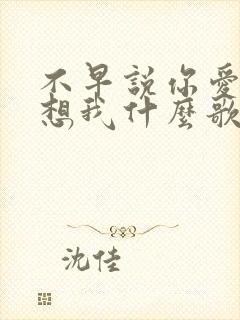 不早說你愛
想我什麼歌
沈佳